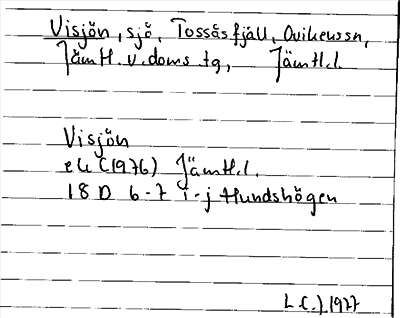 Visjön, sjö, Tossåsfjäll, Ovikenssn,
Jämtl. v. doms. tg, Jämtl. l.
Visjön
ek (1976) Jämtl. l.
18 D 6-7 i-j Hundshögen
L C.J. 1977